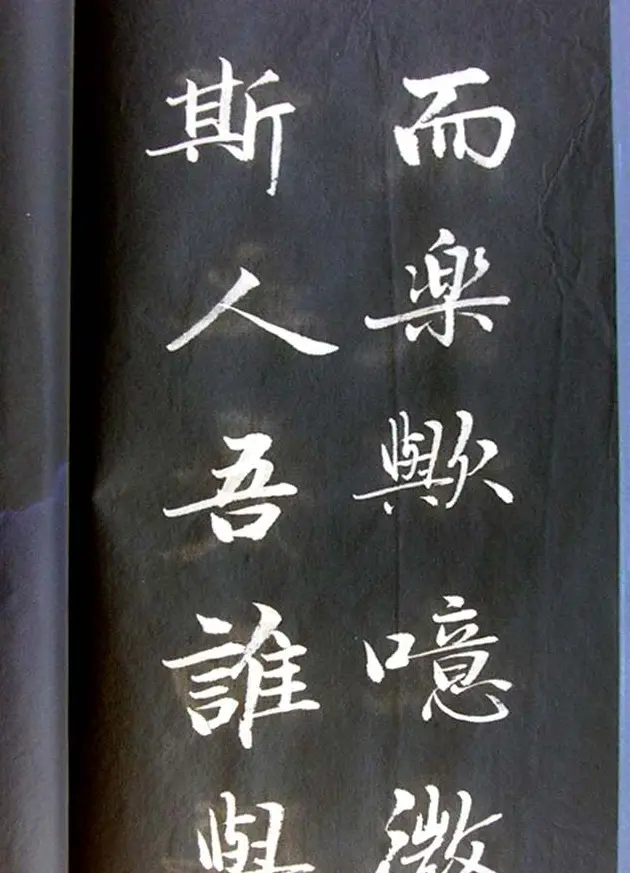 而楽歟噫微
斯人吾誰與